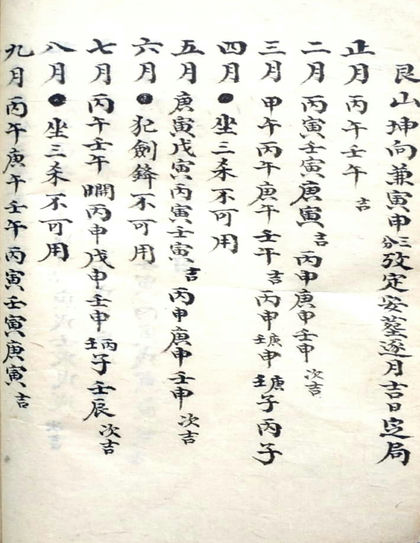 艮山坤向兼寅申分三攷定安葬逐月吉日定局
正月 丙午壬午 吉
二月 丙寅壬寅庚寅 吉 丙申庚申壬申 次吉
三月 甲午丙午庚午壬午 吉 丙申庚壬申庚壬子丙子
四月 ●坐三杀不可用
五月 庚寅戊寅丙寅壬寅 吉 丙申庚申壬申 次吉
六月 ●犯劍鋒不可用
七月 丙午壬午 丙申戊申壬申丙壬子壬辰 次吉
八月 ●坐三杀不可用
九月 丙午庚午壬午丙寅壬寅庚寅 吉